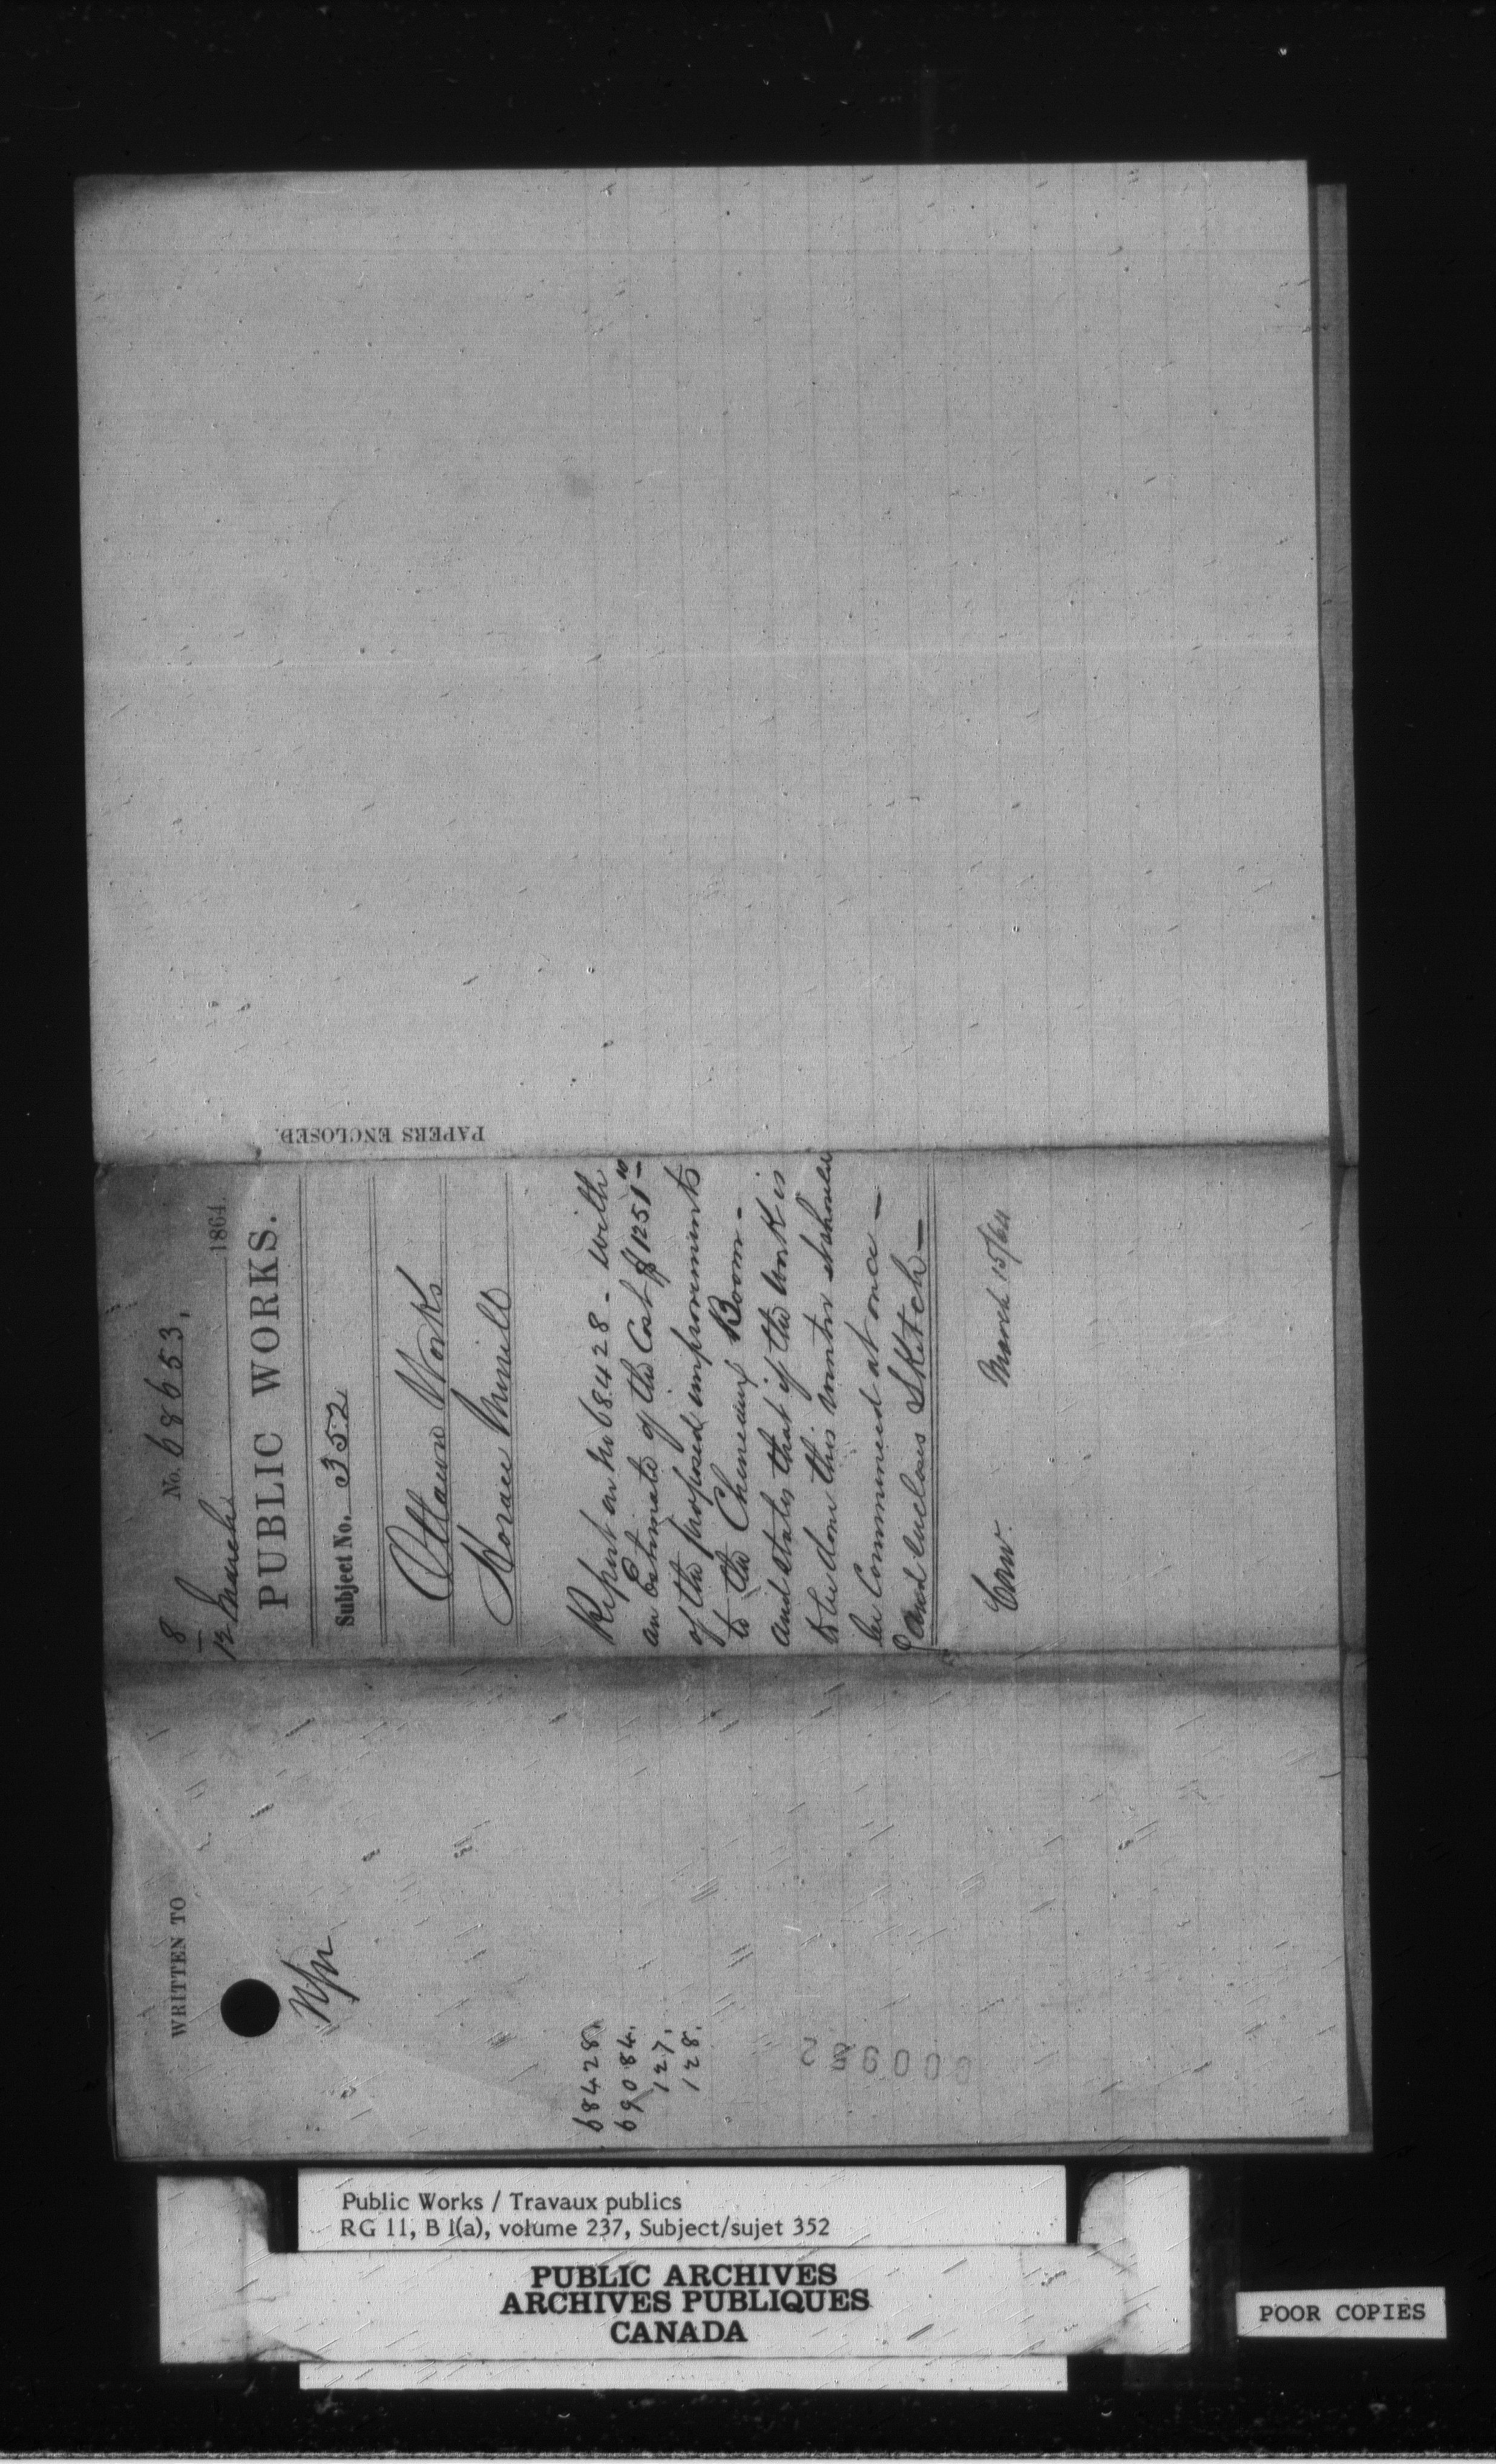 8
12 March 1864.
No. 68653.
PUBLIC WORKS.
Subject No. 352
Ottawa Works
Horace Merrill
Report on No 68428 - with
an Estimate of the Cost $1251 10
of the proposed improvements
to the Cheneaux Boom -
and states that if the work is
to be done this winter it should
be Commenced at once -
and encloses Sketch -
March 15/64
PAPERS ENCLOSED.
WRITTEN TO
68428.
69084.
127.
128.
Public Works / Travaux publics
RG 11, B 1(a), volume 237, Subject/sujet 352
PUBLIC ARCHIVES
ARCHIVES PUBLIQUES
CANADA
POOR COPIES